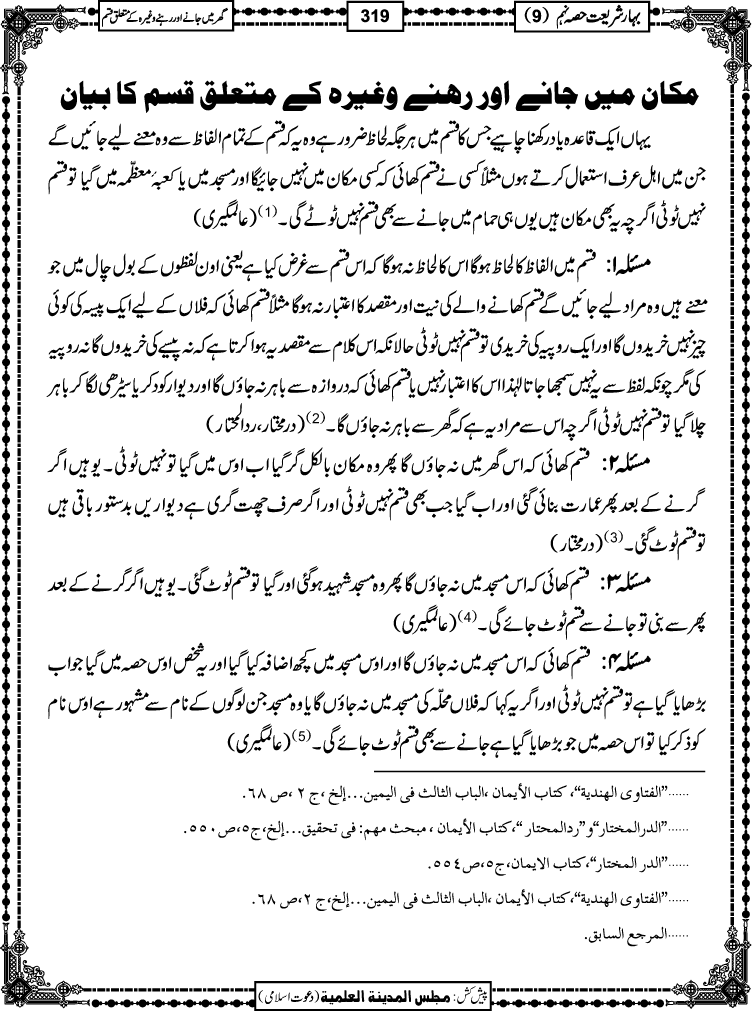 بہار شریعت حصہ نہم (9)
319
گھر میں جانے اور رہنے وغیرہ کے متعلق قسم
مکان میں جانے اور رہنے وغیرہ کے متعلق قسم کا بیان
یہاں ایک قاعدہ یاد رکھنا چاہیے جس کا قسم میں ہر جگہ لحاظ ضرور ہے وہ یہ کہ قسم کے تمام الفاظ سے وہ معنے لیے جائیں گے
جن میں اہل عرف استعمال کرتے ہوں مثلاً کسی نے قسم کھائی کہ کسی مکان میں نہیں جائیگا اور مسجد میں یا کعبۂ معظّمہ میں گیا تو قسم
نہیں ٹوٹی اگرچہ یہ بھی مکان ہیں یوں ہی حمام میں جانے سے بھی قسم نہیں ٹوٹے گی۔(1) (عالمگیری)
مسئلہ ۱: قسم میں الفاظ کا لحاظ ہوگا اس کا لحاظ نہ ہوگا کہ اس قسم سے غرض کیا ہے یعنی اون لفظوں کے بول چال میں جو
معنے ہیں وہ مراد لیے جائیں گے قسم کھانے والے کی نیت اور مقصد کا اعتبار نہ ہوگا مثلاً قسم کھائی کہ فلاں کے لیے ایک پیسہ کی کوئی
چیز نہیں خریدوں گا اور ایک روپیہ کی خریدی تو قسم نہیں ٹوٹی حالانکہ اس کلام سے مقصد یہ ہوا کرتا ہے کہ نہ پیسے کی خریدوں گا نہ روپیہ
کی مگر چونکہ لفظ سے یہ نہیں سمجھا جاتا لہٰذا اس کا اعتبار نہیں یا قسم کھائی کہ دروازہ سے باہر نہ جاؤں گا اور دیوار کود کر یا سیڑھی لگا کر باہر
چلا گیا تو قسم نہیں ٹوٹی اگرچہ اس سے مراد یہ ہے کہ گھر سے باہر نہ جاؤں گا۔(2) (درمختار، ردالمحتار)
مسئلہ ۲: قسم کھائی کہ اس گھر میں نہ جاؤں گا پھر وہ مکان بالکل گر گیا اب اوس میں گیا تو نہیں ٹوٹی۔ یوہیں اگر
گرنے کے بعد پھر عمارت بنائی گئی اور اب گیا جب بھی قسم نہیں ٹوٹی اور اگر صرف چھت گری ہے دیواریں بدستور باقی ہیں
تو قسم ٹوٹ گئی۔(3) (درمختار)
مسئلہ ۳: قسم کھائی کہ اس مسجد میں نہ جاؤں گا پھر وہ مسجد شہید ہوگئی اور گیا تو قسم ٹوٹ گئی۔ یوہیں اگر گرنے کے بعد
پھر سے بنی تو جانے سے قسم ٹوٹ جائے گی۔(4) (عالمگیری)
مسئلہ ۴: قسم کھائی کہ اس مسجد میں نہ جاؤں گا اور اوس مسجد میں کچھ اضافہ کیا گیا اور یہ شخص اوس حصہ میں گیا جو اب
بڑھایا گیا ہے تو قسم نہیں ٹوٹی اور اگر یہ کہا کہ فلاں محلّہ کی مسجد میں نہ جاؤں گا یا وہ مسجد جن لوگوں کے نام سے مشہور ہے اوس نام
کو ذکر کیا تو اس حصہ میں جو بڑھایا گیا ہے جانے سے بھی قسم ٹوٹ جائے گی۔(5) (عالمگیری)
......”الفتاوی الھندیة“، کتاب الأیمان ،الباب الثالث فی الیمین...إلخ ،ج ۲ ،ص ۶۸.
......”الدرالمختار“و ”ردالمحتار “،کتاب الأیمان ، مبحث مھم: فی تحقیق...إلخ،ج۵،ص۵۵۰.
......”الدر المختار“، کتاب الایمان،ج۵،ص۵۵٤.
......”الفتاوی الھندیة“، کتاب الأیمان ،الباب الثالث فی الیمین...إلخ،ج ۲،ص ۶۸.
......المرجع السابق.
پیش کش: مجلس المدینة العلمیة (دعوت اسلامی)